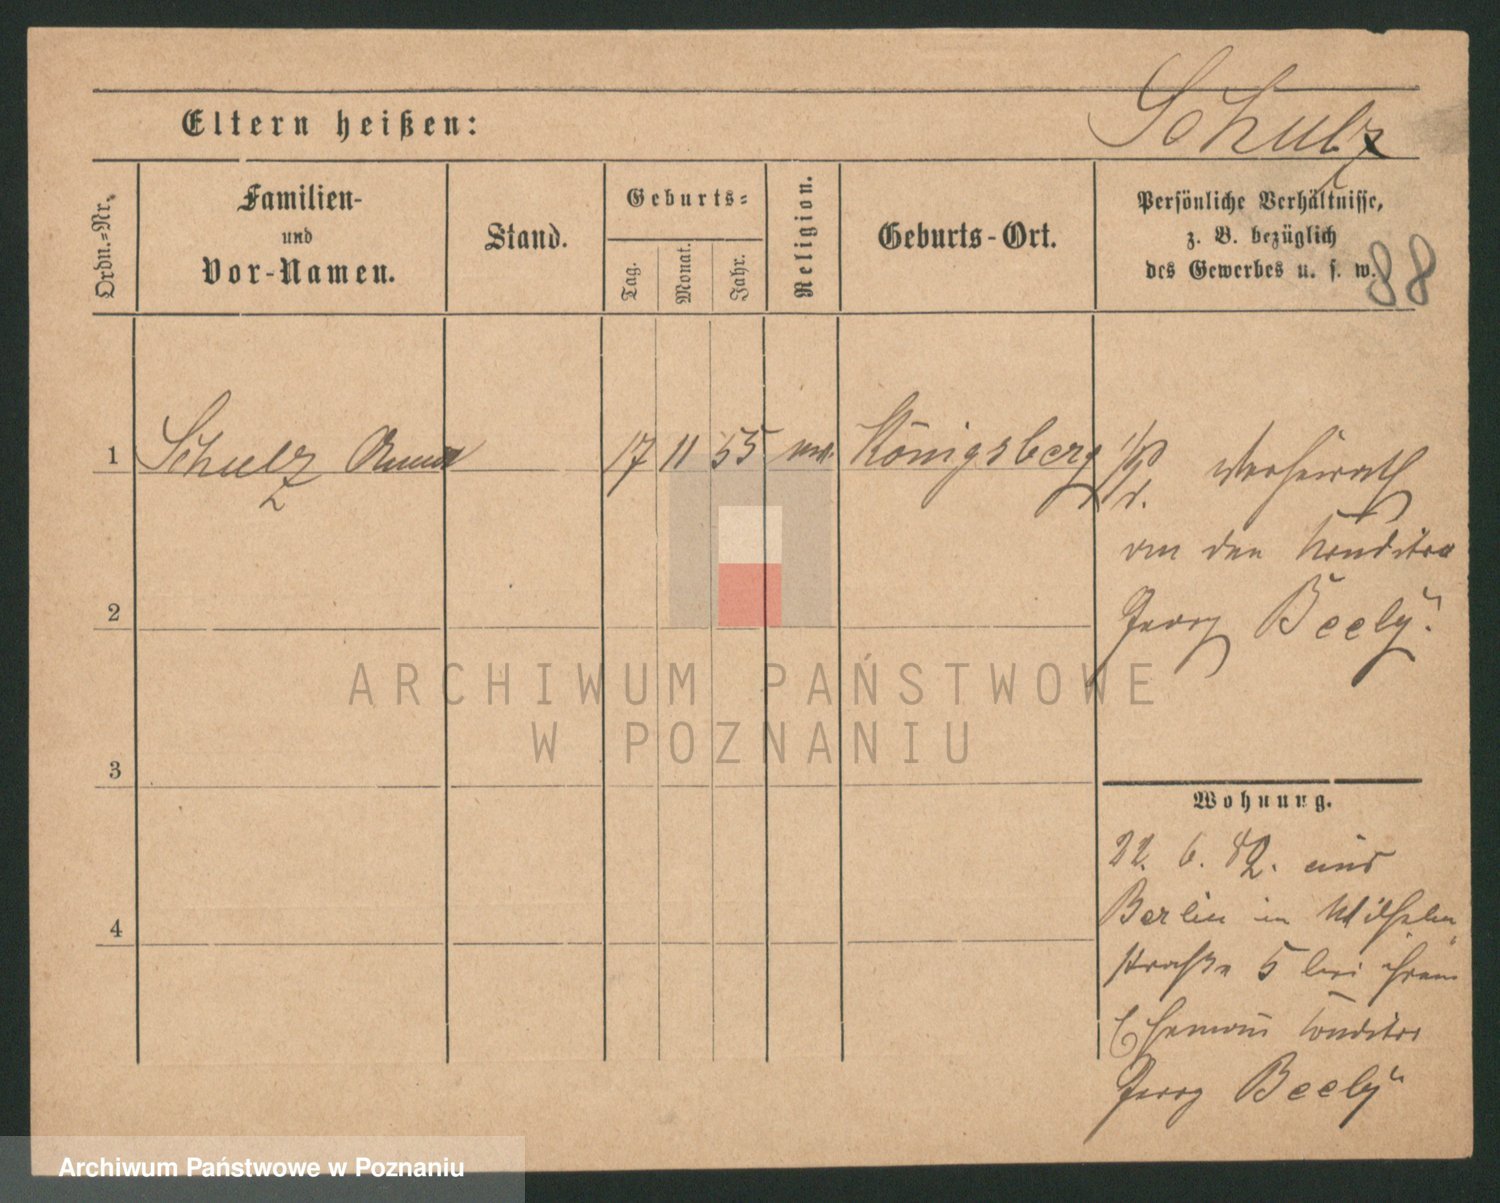 Schulz
Eltern heißen:
Ordn.-Nr.
Familien-
und
Vor-Namen.
Stand.
Geburts-
Tag.
Monat.
Jahr.
Religion.
Geburts-Ort.
Persönliche Verhältnisse,
z. B. bezüglich
des Gewerbes u. s. w.
88
1 Schulz Anna 17 11 55 Königsberg
verheirath
an den Konditor
Georg Beely.
2
3
4
ARCHIWUM PAŃSTWOWE
W POZNANIU
Wohnung.
22. 6. 82. aus
Berlin in Wilhelm
straße 5 bei ihrem
Ehemann Conditor
Georg Beely
Archiwum Państwowe w Poznaniu